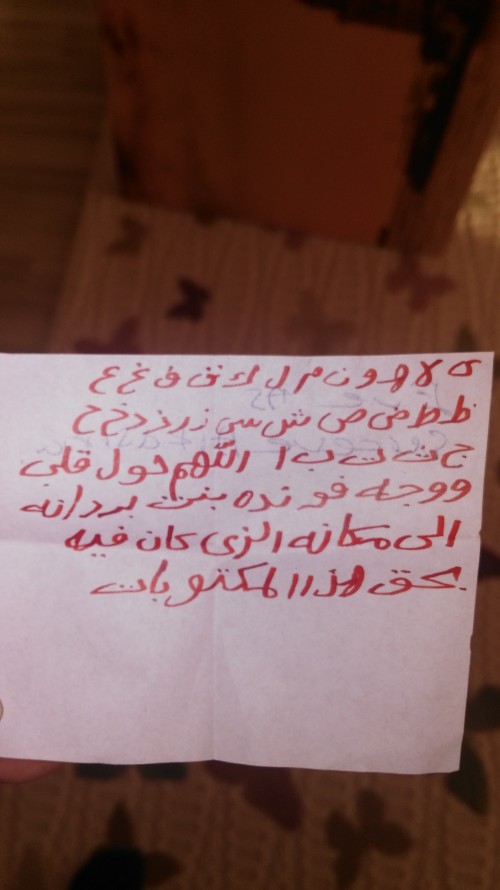 ى لا ه و ن م ل ك ق ف غ ع
ظ ط ض ص ش س ز ر ذ د خ ح
ج ث ت ب ا اللهم حول قلبي
ووجه فونده بنت بردانه
الى مكانه الزى كان فيه
بحق هذا المكتوبات